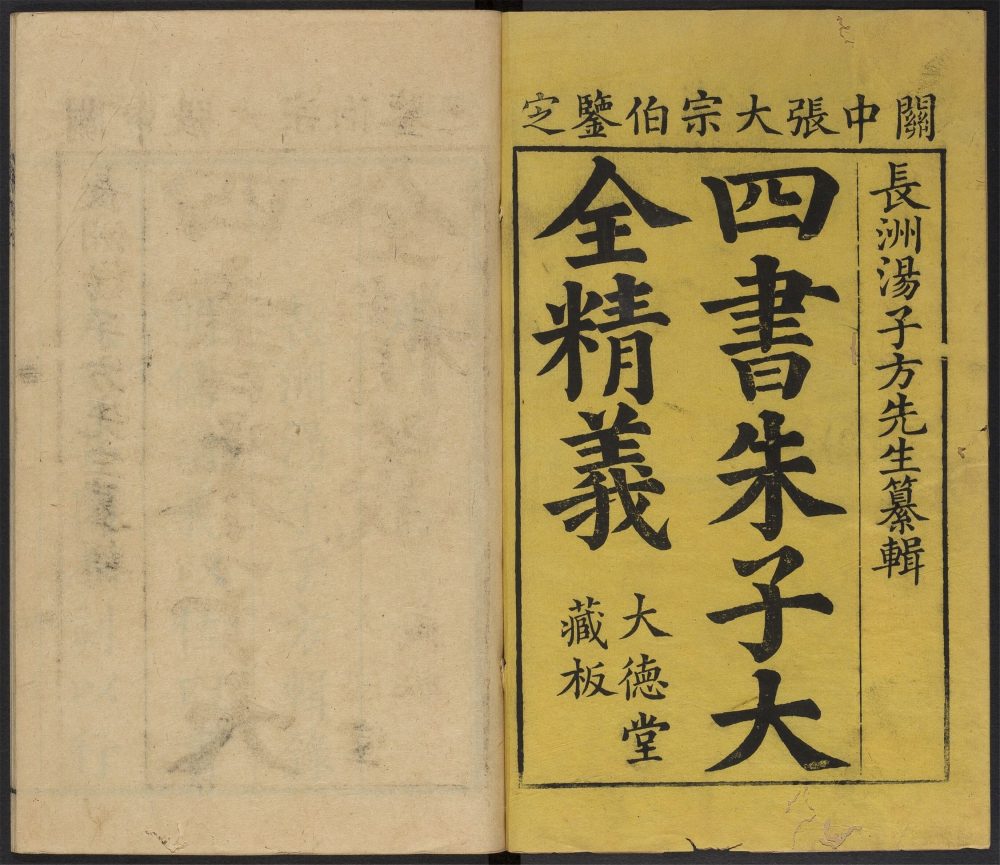 關中張大宗伯鑒定
長洲湯子方先生纂輯
四書朱子大
全精義
大德堂
藏板